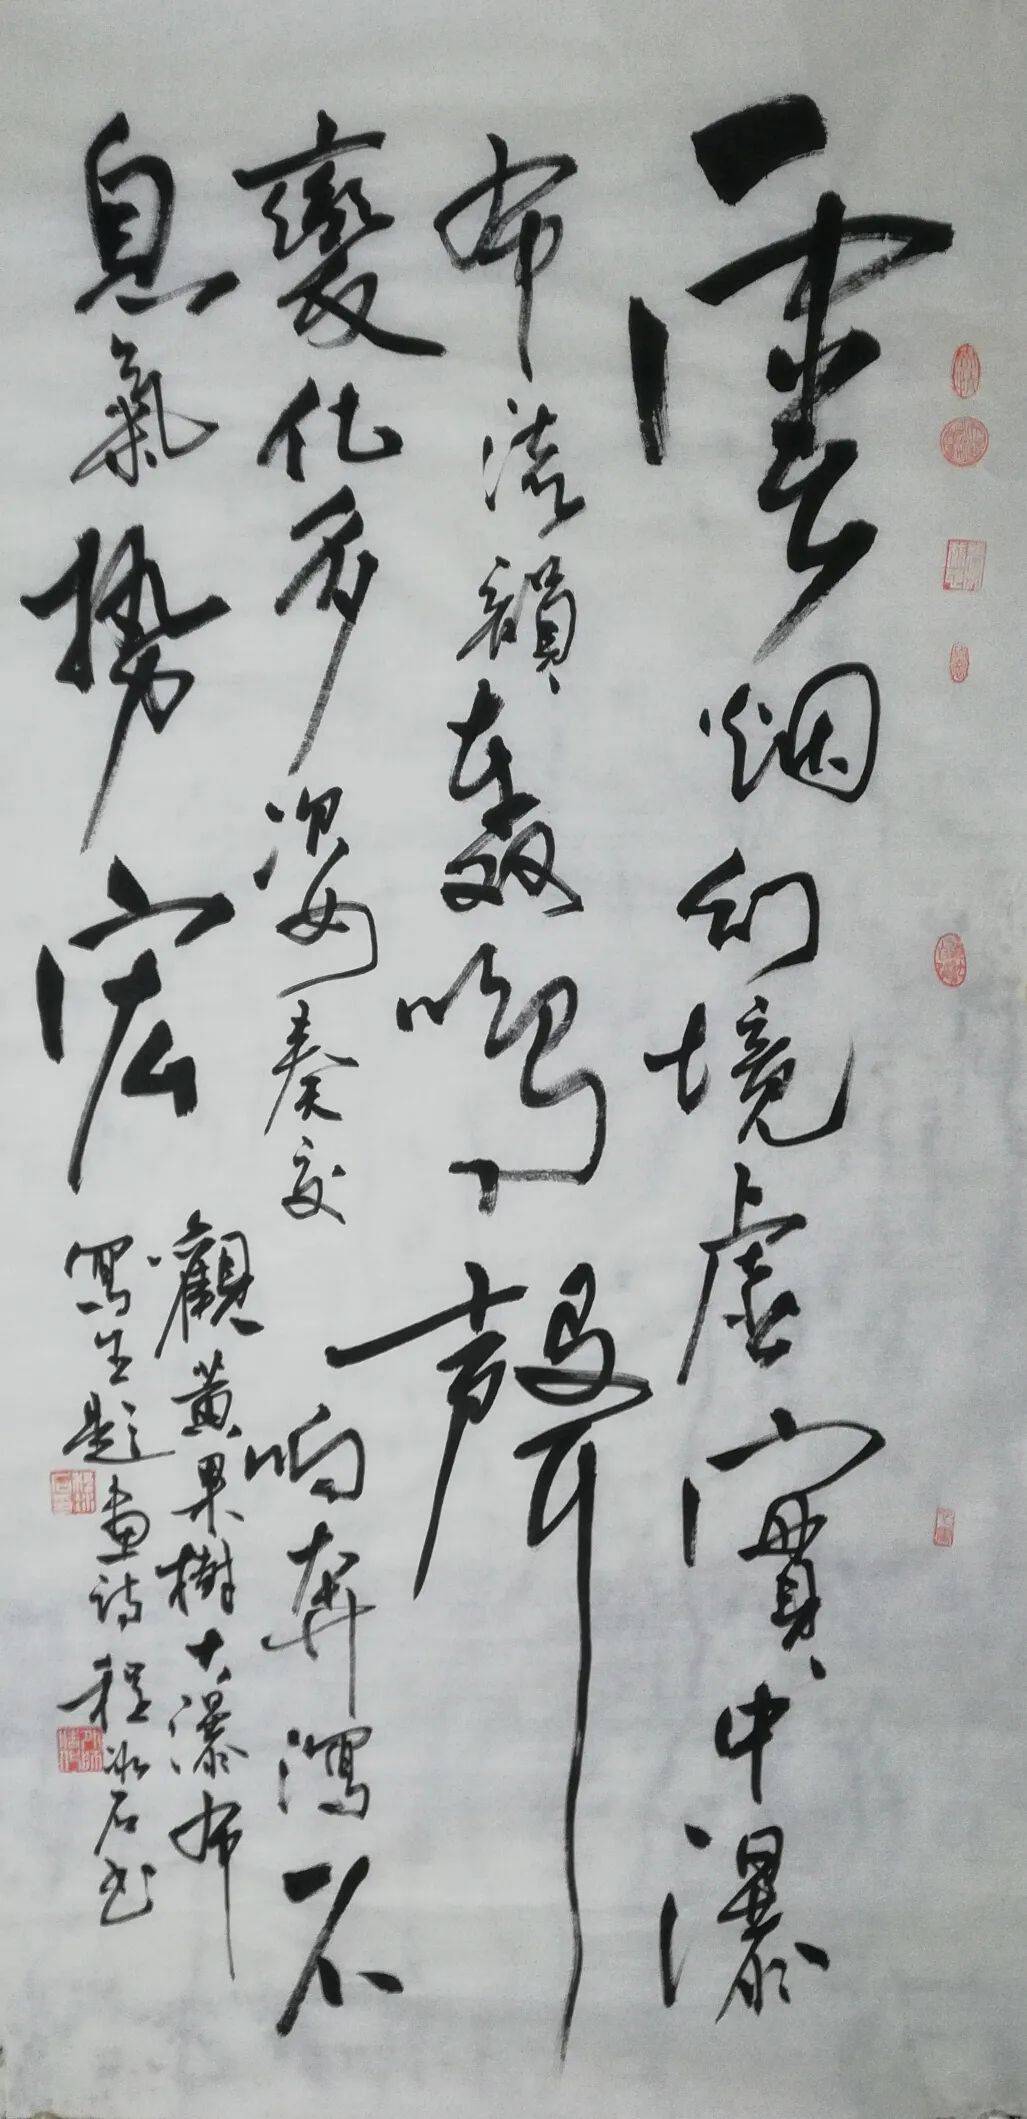 雲烟幻境虛實中瀑
布流韻轟鳴聲
變化多姿奏交
响奔瀉不
息氣勢宏
觀黃果樹大瀑布
寫生題畫詩程冰石书